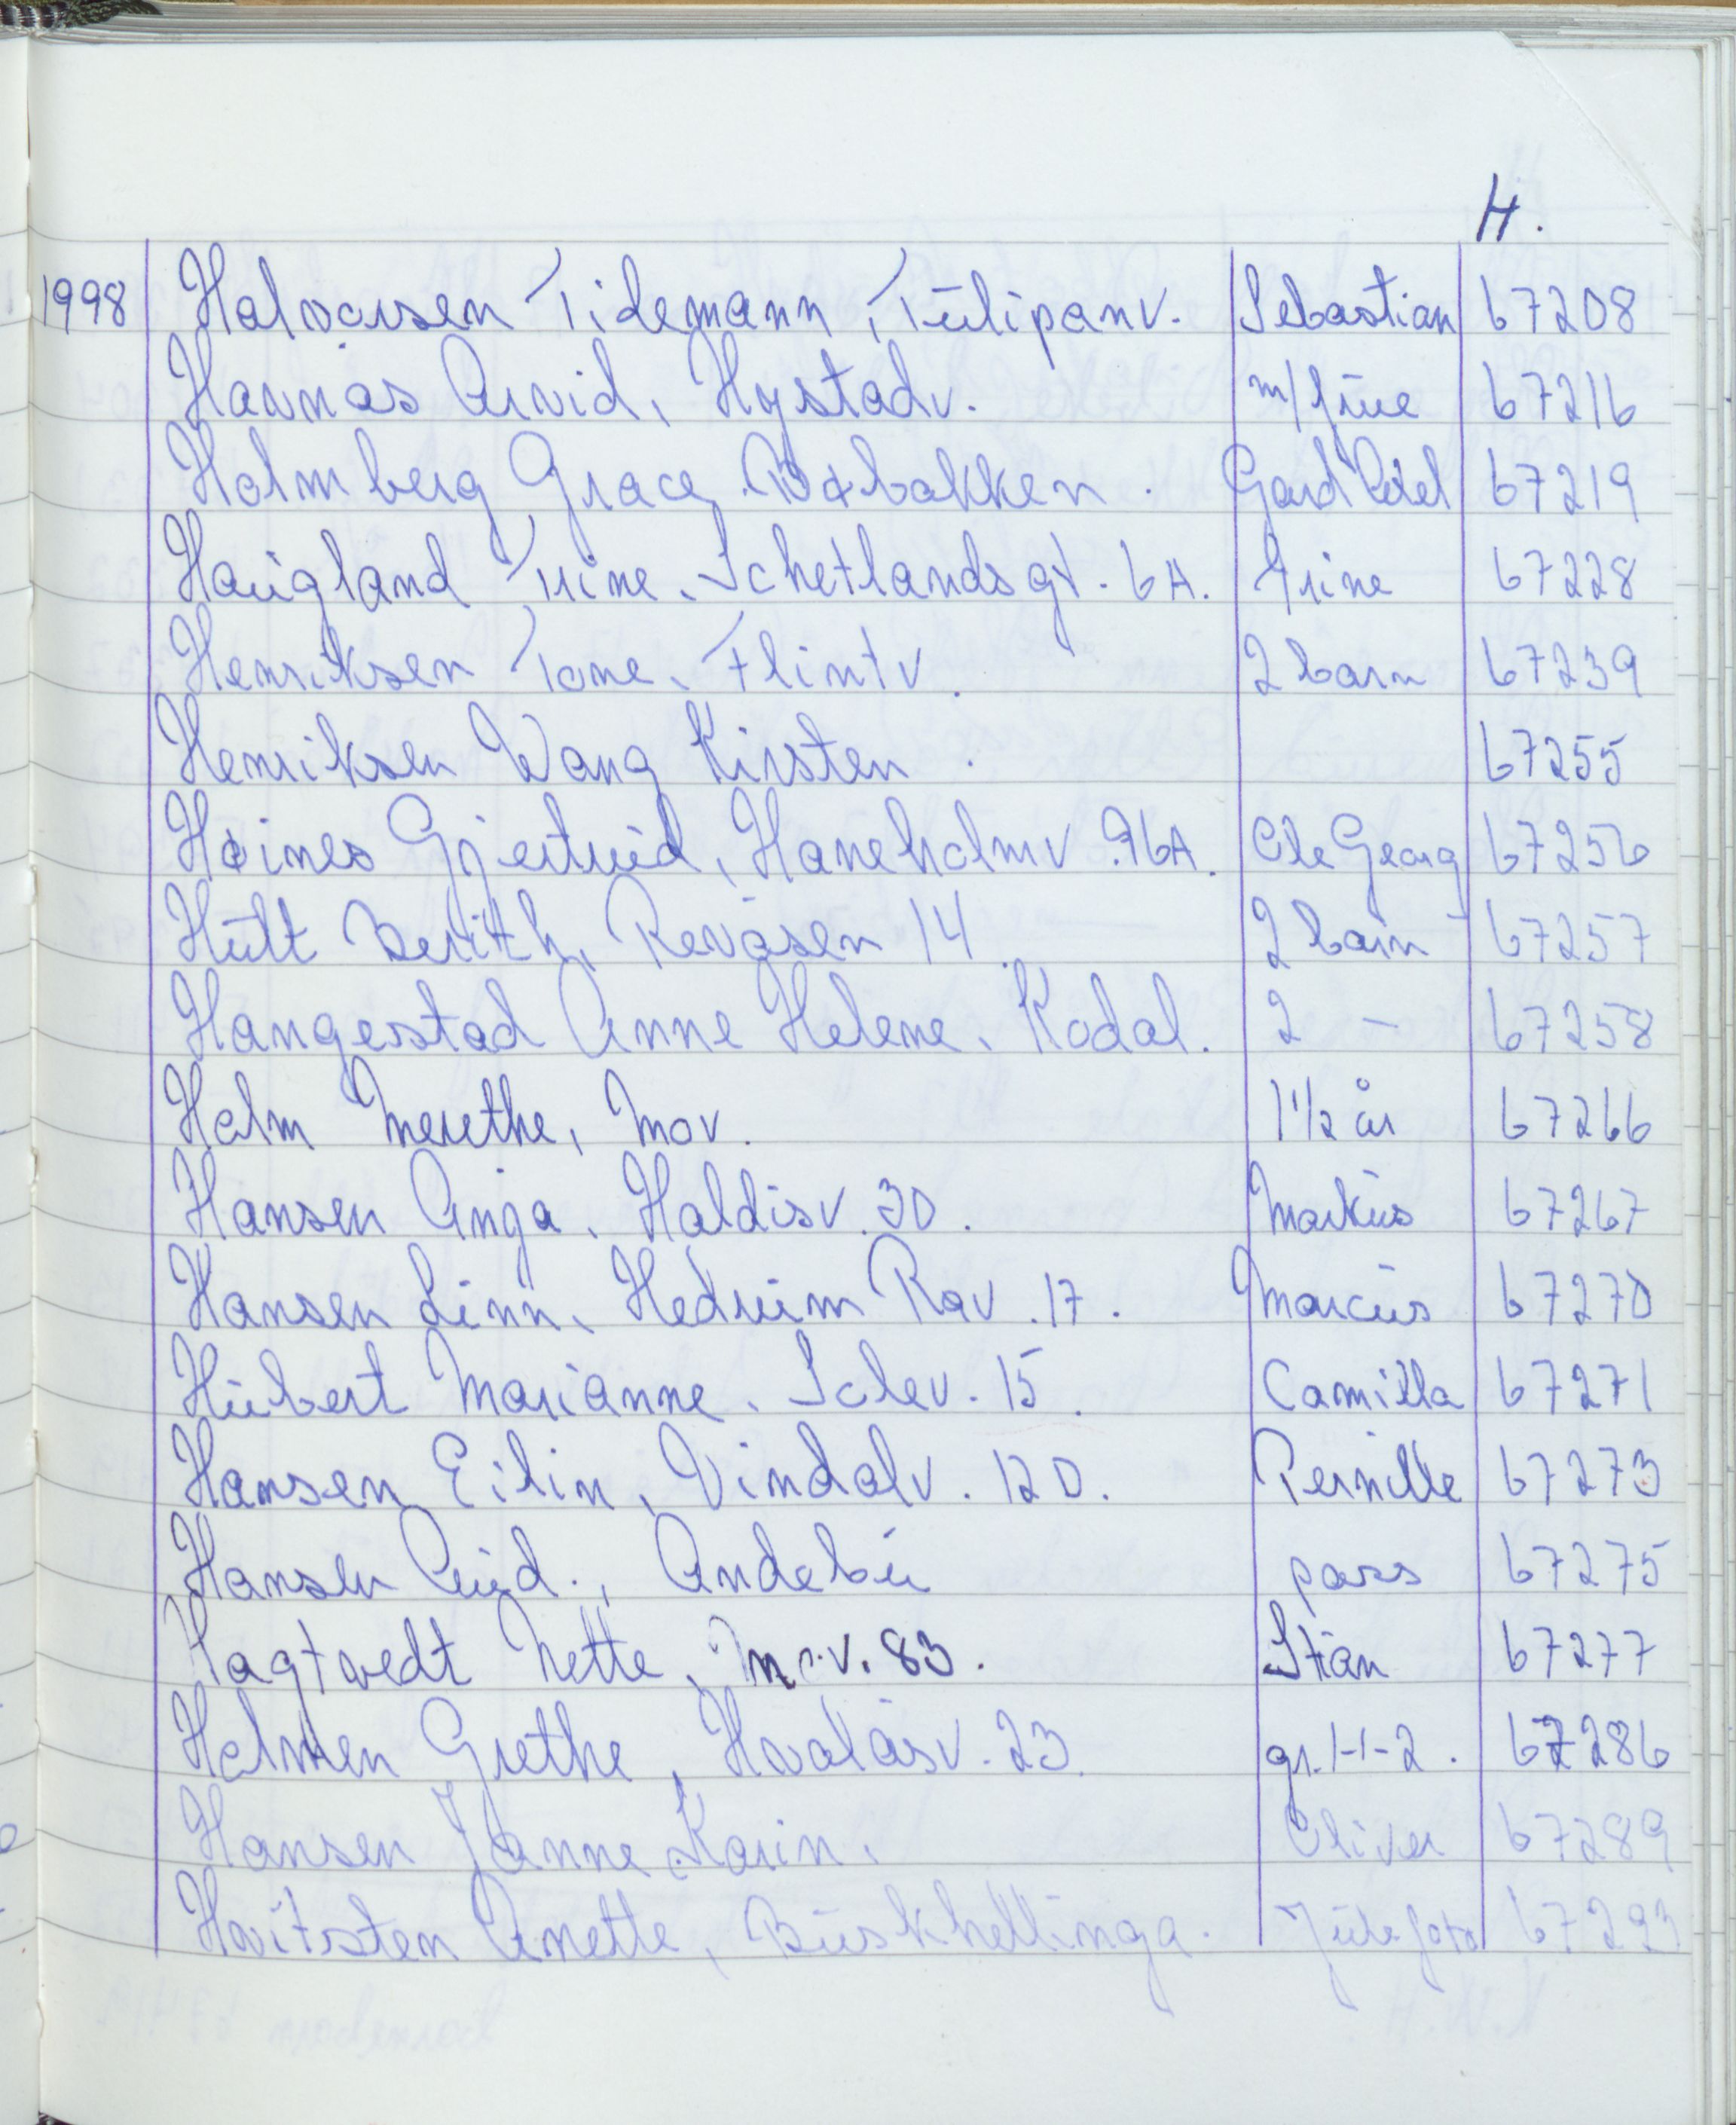 H.
1998 Halvorsen Tidemann, Tulipanv. Sebastian 67208
Havnås Arvid, Hystadv. m/frue 67216
Holmberg Grace, Boxbakken. Gard 67219
Haugland Trine, Schetlandsgt. 6A. Trine 67228
Henriksen Tone, Flintv. 2 barn 67239
Henriksen Wang Kirsten. 67255
Heines Gjertrud, Haneholmv. 96A. Ole Georg 67256
Hult Berith, Revåsen 14. 2 barn 67257
Hangestad Anne Helene, Kodal. 2 — 67258
Holm Merethe, Mov. 1 1/2 år 67266
Hansen Anja, Haldisv. 30. Markus 67267
Hansen Linn, Hedrum Rav. 17. Marcus 67270
Hubert Marianne, Solev. 15. Camilla 67271
Hansen Eilin, Vindalv. 12 D. Pernille 67273
Hansen Aud., Andebu pass 67275
Hagtvedt Mette, Mo.v. 83. Stian 67277
Holmen Grethe, Hvalåsv. 23. gr. 1-1-2. 67286
Hansen Janne Karin, Oliver 67289
Hvitsten Anette, Buskhellinga. Julefoto 67293